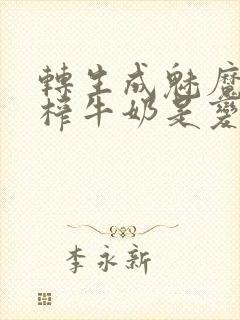 轉生成魅魔
榨牛奶是變
李永新